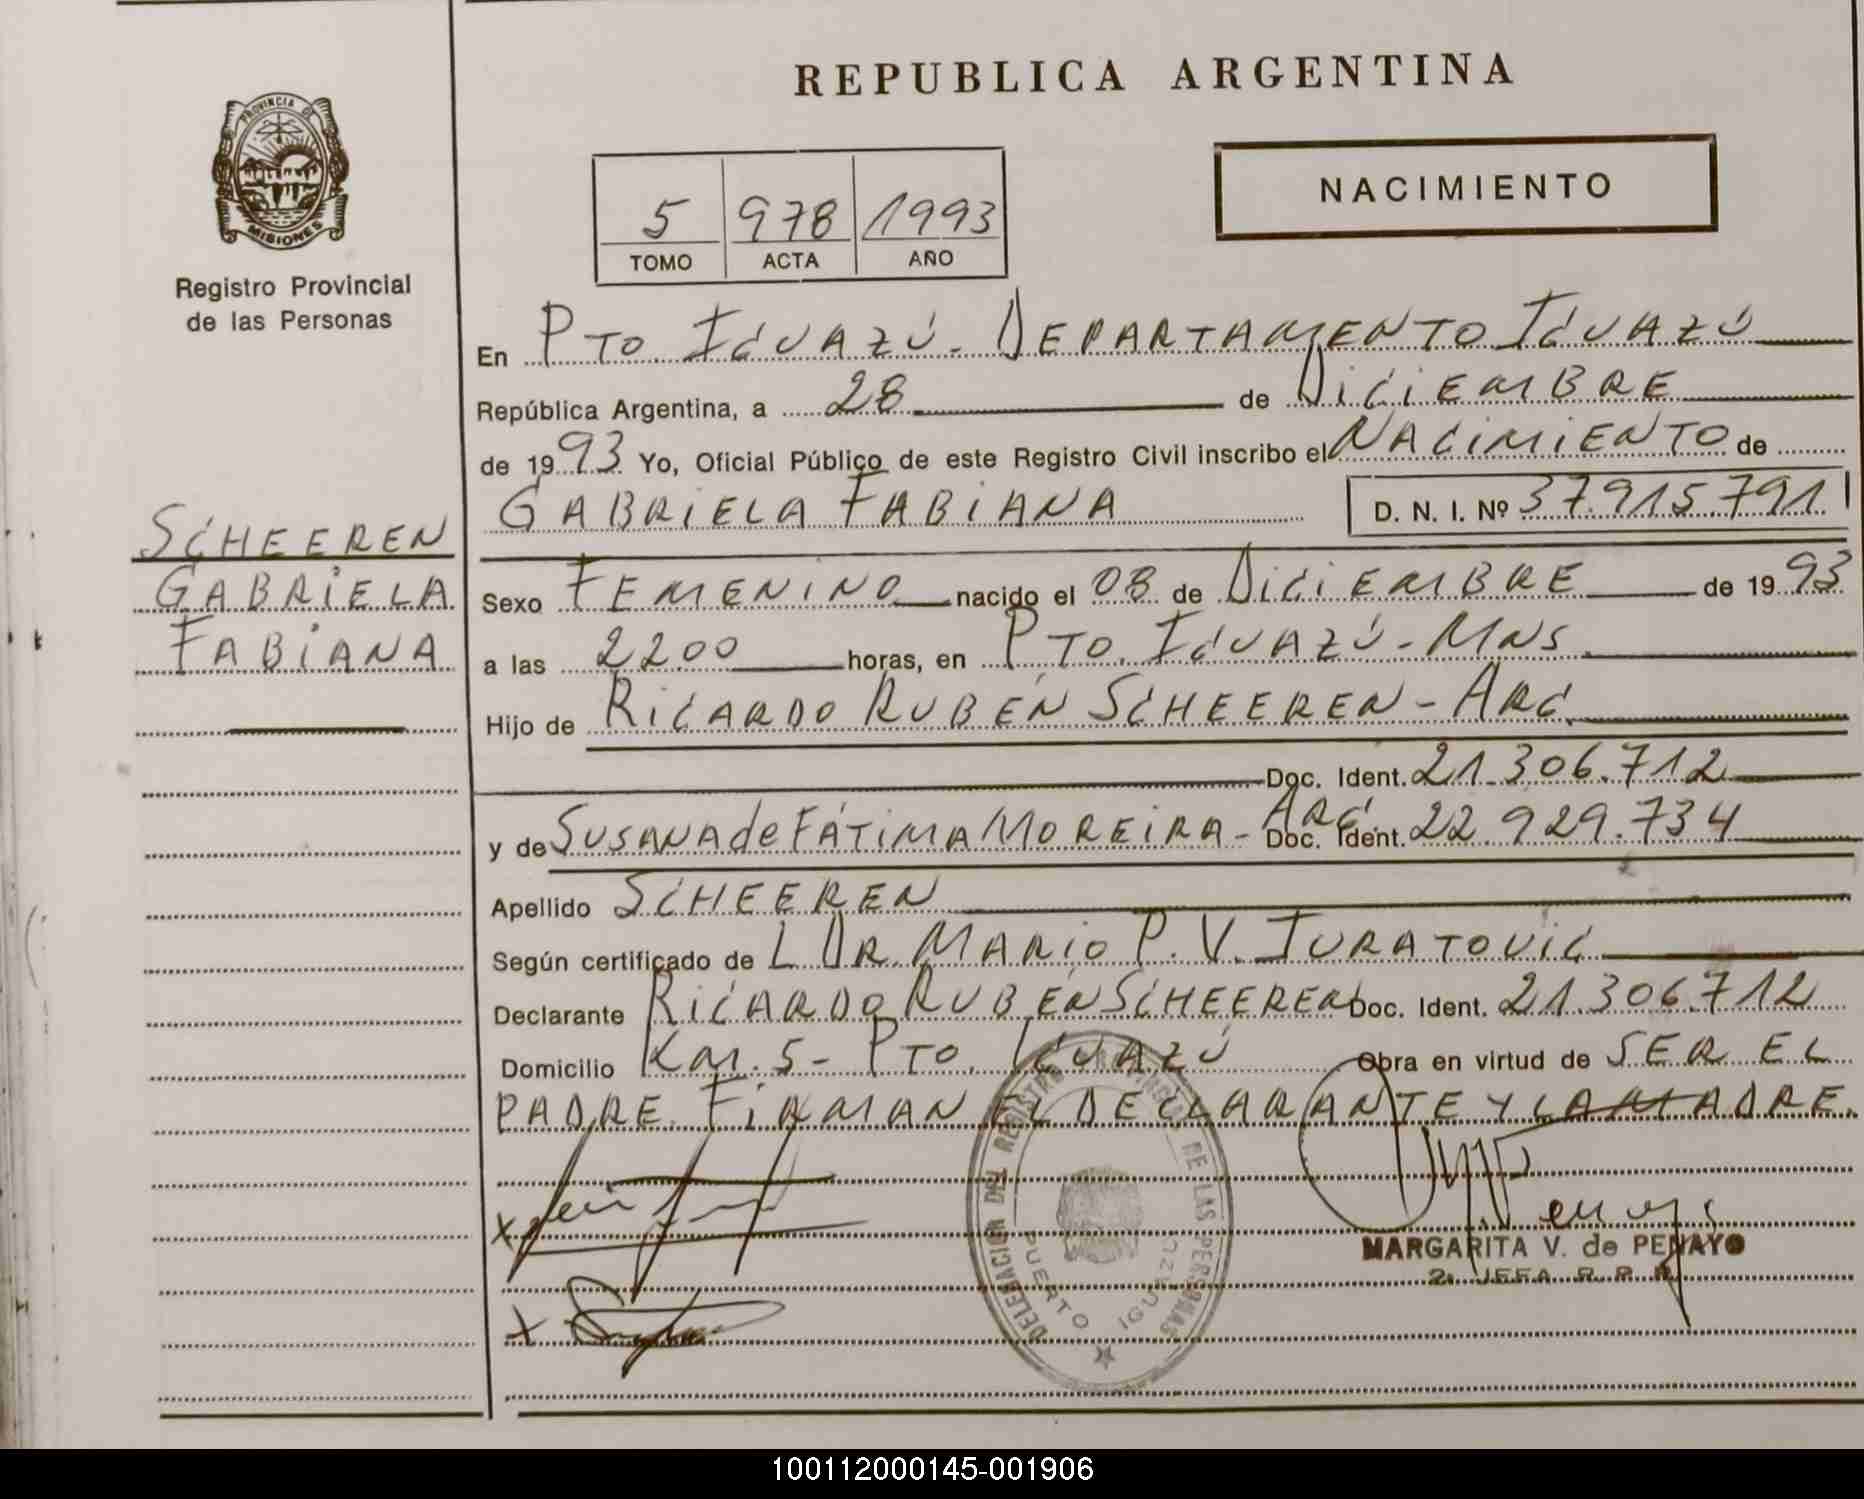 REPUBLICA ARGENTINA
PROVINCIA DE
MISIONES
Registro Provincial
de las Personas
NACIMIENTO
5 978 1993
TOMO ACTA AÑO
En Pto. Iguazú - Departamento Iguazú
República Argentina, a 28 de Diciembre
de 1993 Yo, Oficial Público de este Registro Civil inscribo el Nacimiento de
Gabriela Fabiana D. N. I. Nº 37.915.791
Scheeren
Gabriela
Fabiana
Sexo Femenino nacido el 08 de Diciembre de 1993
a las 22.00 horas, en Pto. Iguazú - Mns.
Hijo de Ricardo Rubén Scheeren - Arg.
Doc. Ident. 21.306.712
y de Susana de Fátima Moreira - Arg. Doc. Ident. 22.929.734
Apellido Scheeren
Según certificado de L Dr. Mario P. V. Juratovic
Declarante Ricardo Rubén Scheeren Doc. Ident. 21.306.712
Domicilio Km. 5 - Pto. Iguazú Obra en virtud de ser el
padre. Firman el declarante y la madre.
DELEGACION DEL REGISTRO PROVINCIAL DE LAS PERSONAS
PUERTO IGUAZU
MARGARITA V. de PENAYO
2º JEFA R. P. P.
100112000145-001906